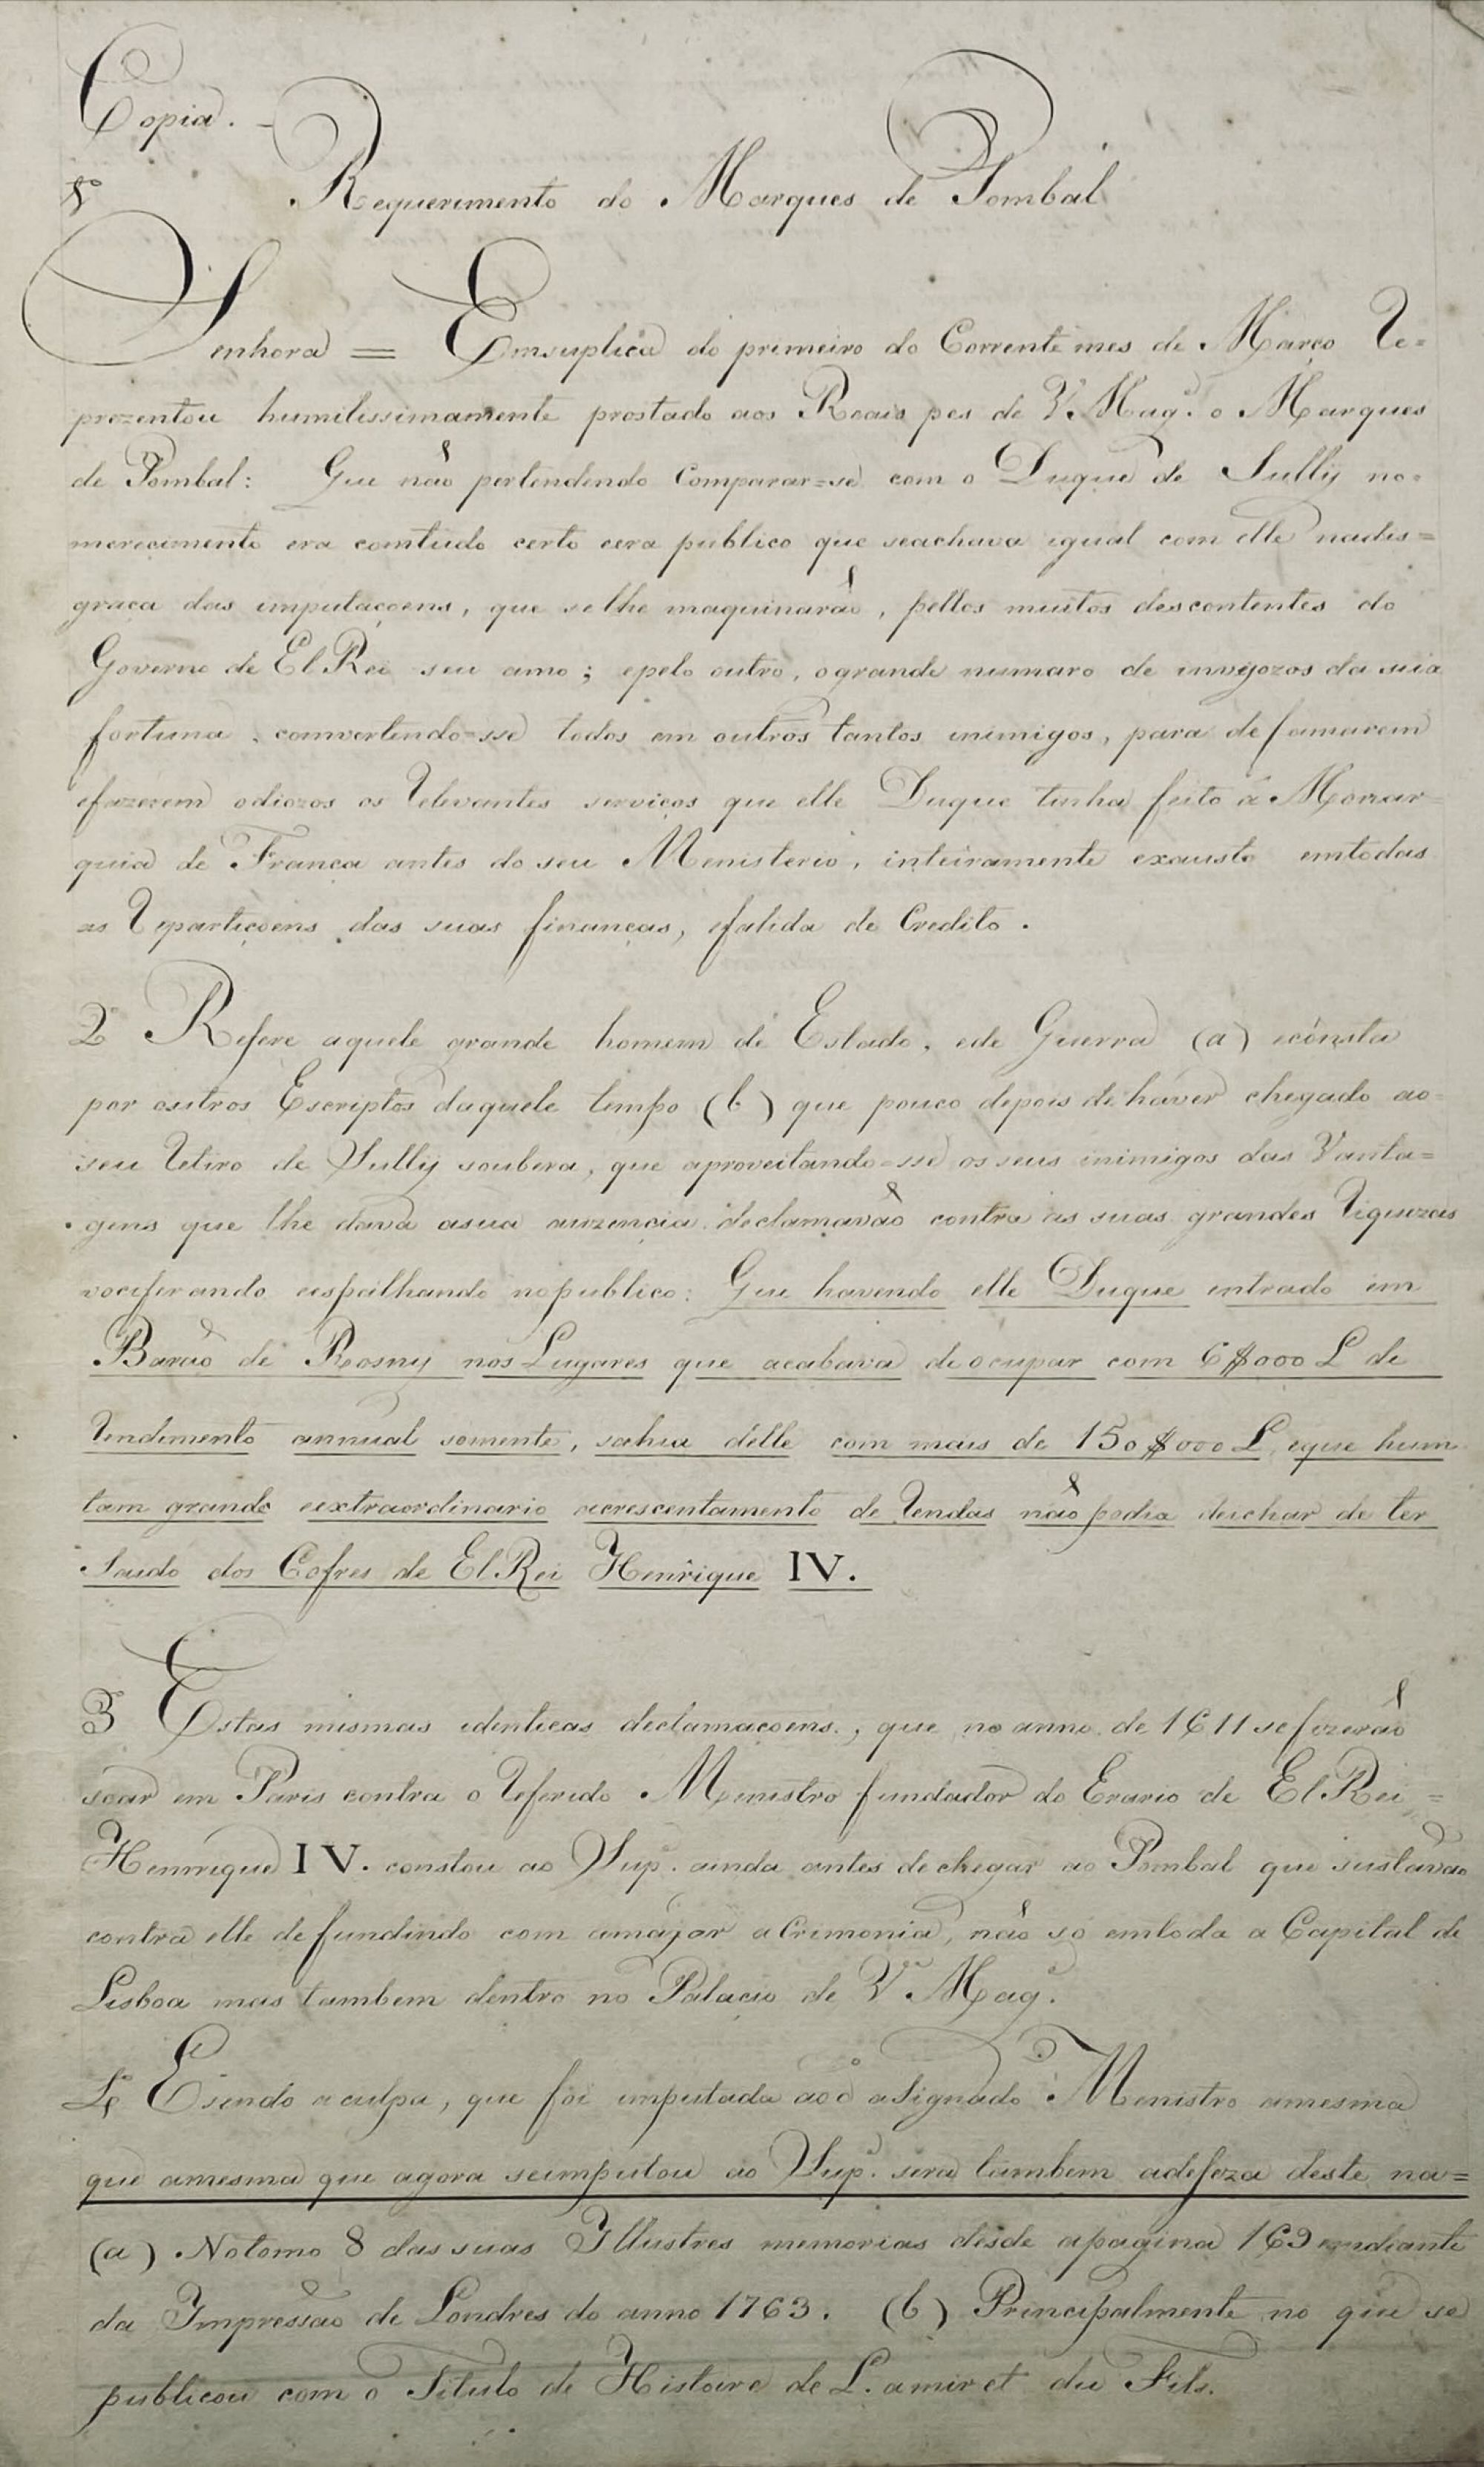 Copia. -
Requerimento do Marques de Pombal
Senhora = Emsuplica do primeiro do Corrente mes de Março Re=
prezentou humilissimamente prostado aos Reais pes de V. Mag.e o Marques
de Pombal: Que não pertendendo Comparar=se com o Duque de Sully no=
merecimento era comtudo certo eera publico que seachava igual com elle nadis=
graça das imputaçoens, que selhe maquinarão, pellos muitos descontentes do
Governo de El Rei seu amo; epelo outro, ogrande numaro de invejozos da sua
fortuna, comvertendo=sse todos em outros tantos inimigos, para defamarem
efazerem odiozos os Relevantes serviços que elle Duque tinha feito á Monar=
quia de Franca antes do seu Menisterio, inteiramente exausta emtodas
as Repartiçoens das suas finanças, efalida de Credito.
2º Refere aquele grande homem de Estado, ede Guerra (a) econsta
por outros Escriptos daquele tempo (b) que pouco depois de haver chegado ao=
seu Retiro de Sully soubera, que aproveitando=sse os seus inimigos das Vanta=
gens que lhe dava asua auzencia declamavão contra as suas grandes Riquezas
vociferando eespalhando nopublico: Que havendo elle Duque entrado em
Barão de Rosny nos Lugares que acabava de ocupar com 6$000 L de
Rendimento annual somente, sahia delle com mais de 150$000 L, eque hum
tam grande eextraordinario acrescentamento de Rendas não podia deichar de ter
Saido dos Cofres de El Rei Henrique IV.
3 Estas mismas identicas declamacoens, que no anno de 1611 sefizerão
soar em Paris contra o Referido Menistro fundador do Erario de El Rei =
Henrrique IV. constou ao Sup.e ainda antes de chegar ao Pombal que sustavão
contra elle defundindo com amajor aCrimonia, não so emtoda a Capital de
Lisboa mas tambem dentro no Palacio de V.a Mag.e
4º Esendo aculpa, que foi imputada aoo aSignado Menistro amesma
que amesma que agora seimputou ao Sup.e sera tambem adefeza deste na=
(a) Notomo 8 das suas Illustres memorias desde apagina 169 emdiante
da Impressão de Londres do anno 1763. (b) Principalmente no que se
publicou com o Titulo de Histoire de L. amir et du Fils.